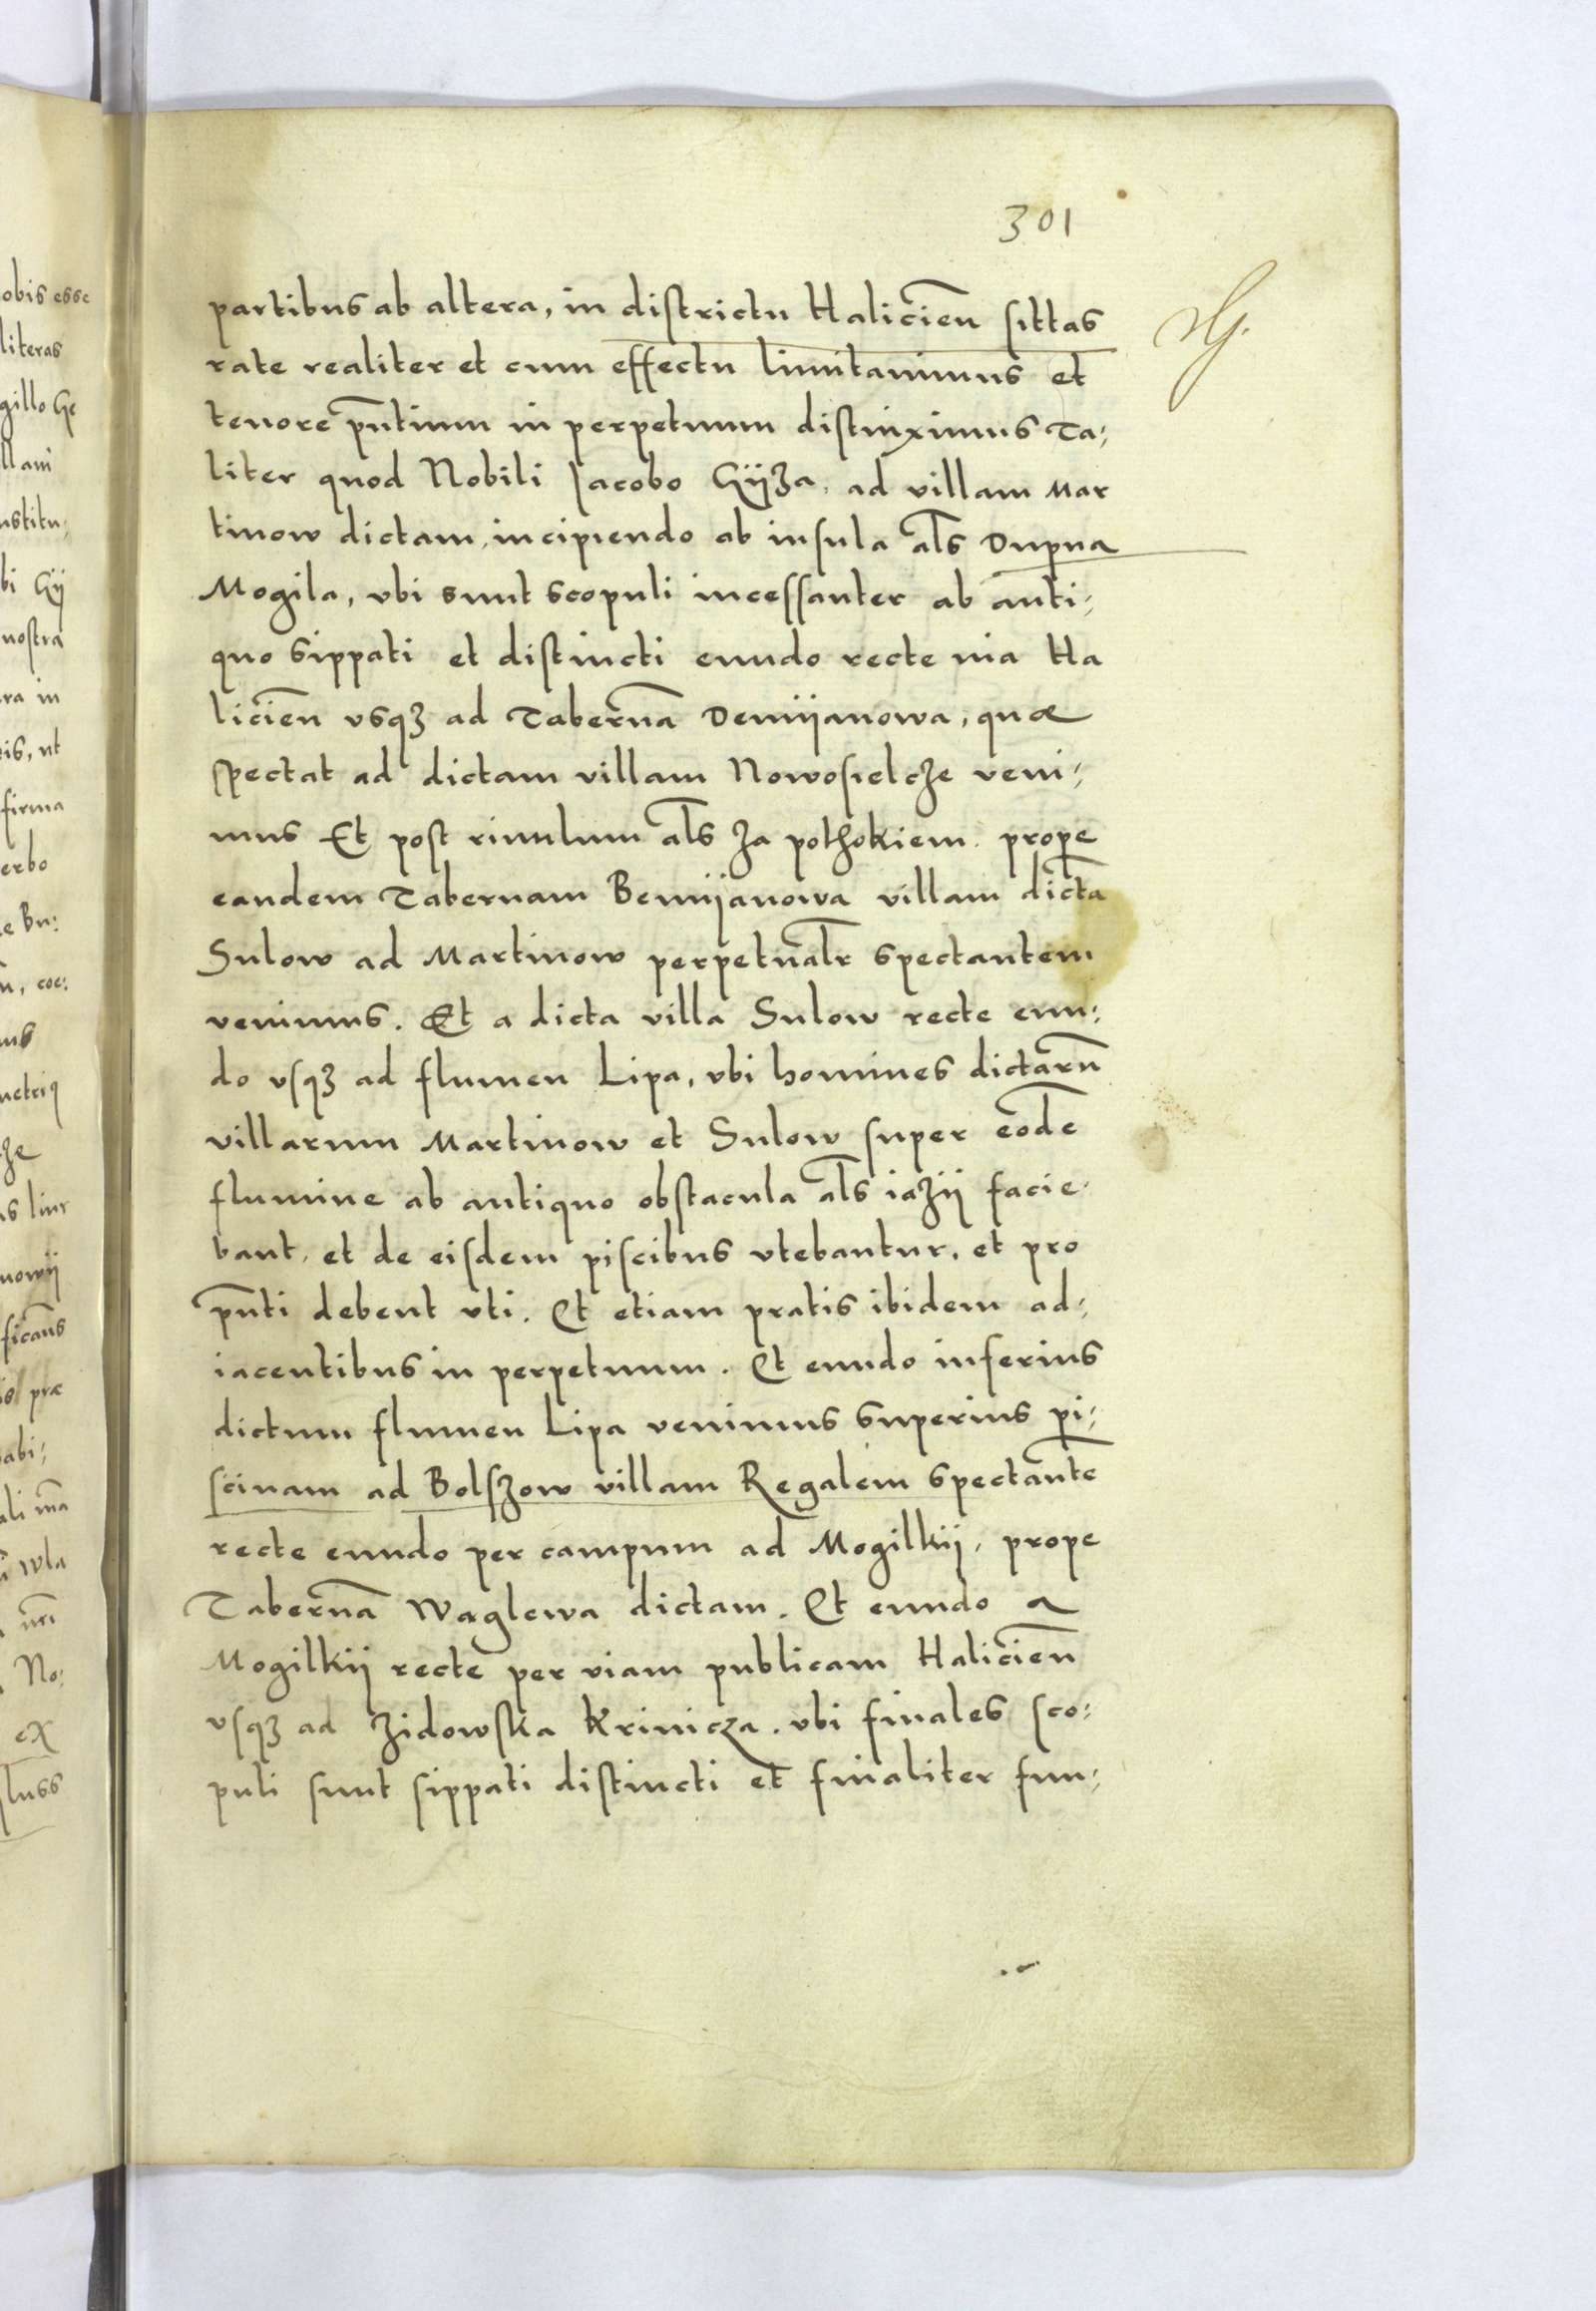 301
partibus ab altera, in districtu Halicień sittas
rate realiter et cum effectu limitauimus et
tenore pn̄tium in perpetuum distinximus Ta⸗
liter quod Nobili Jacobo Gÿza, ad villam Mar
tinow dictam, incipiendo ab insula als̄ Dupna
Mogila, vbi sunt scopuli incessanter ab anti⸗
quo sippati et distincti eundo recte via Ha
licień vsqꝫ ad Tabernā Demÿanowa, quæ
spectat ad dictam villam Nowosielcze veni⸗
mus Et post riuulum als̄ za pothokiem. prope
eandem Tabernam Bemÿanowa villam dictā
Sulow ad Martinow perpetualr̄ spectantem
venimus. Et a dicta villa Sulow recte eun⸗
do vsqꝫ ad flumen Lipa, vbi homines dictarū
villarum Martinow et Sulow super eodē
flumine ab antiquo obstacula als̄ iazÿ facie⸗
bant, et de eisdem piscibus vtebantur, et pro
pn̄ti debent vti. Et etiam pratis ibidem ad⸗
iacentibus in perpetuum. Et eundo inferius
dictum flumen Lipa venimus superius pi⸗
scinam ad Bolszow villam Regalem spectantē
recte eundo per campum ad Mogilkÿ, prope
Tabernā Waglewa dictam. Et eundo a
Mogilkÿ recte per viam publicam Halicień
vsqꝫ ad Zidowska Krinicza. vbi finales sco⸗
puli sunt sippati distincti et finaliter fun⸗
obis esse
literas
nostra
ra in
firma
erbo
nowÿ
præ
No:
ex